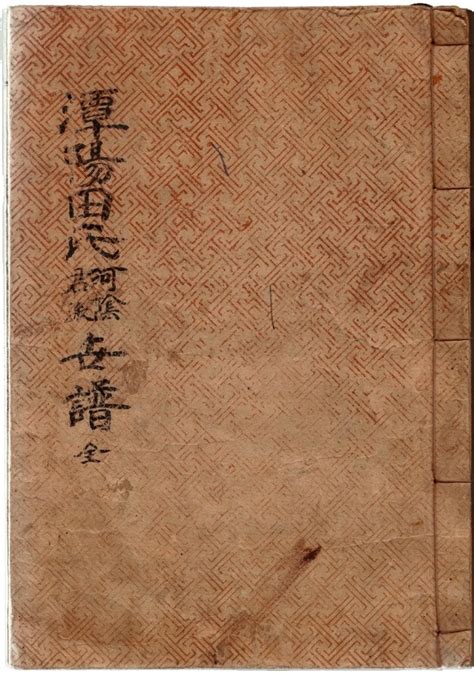 潭陽田氏河陰君派世譜全